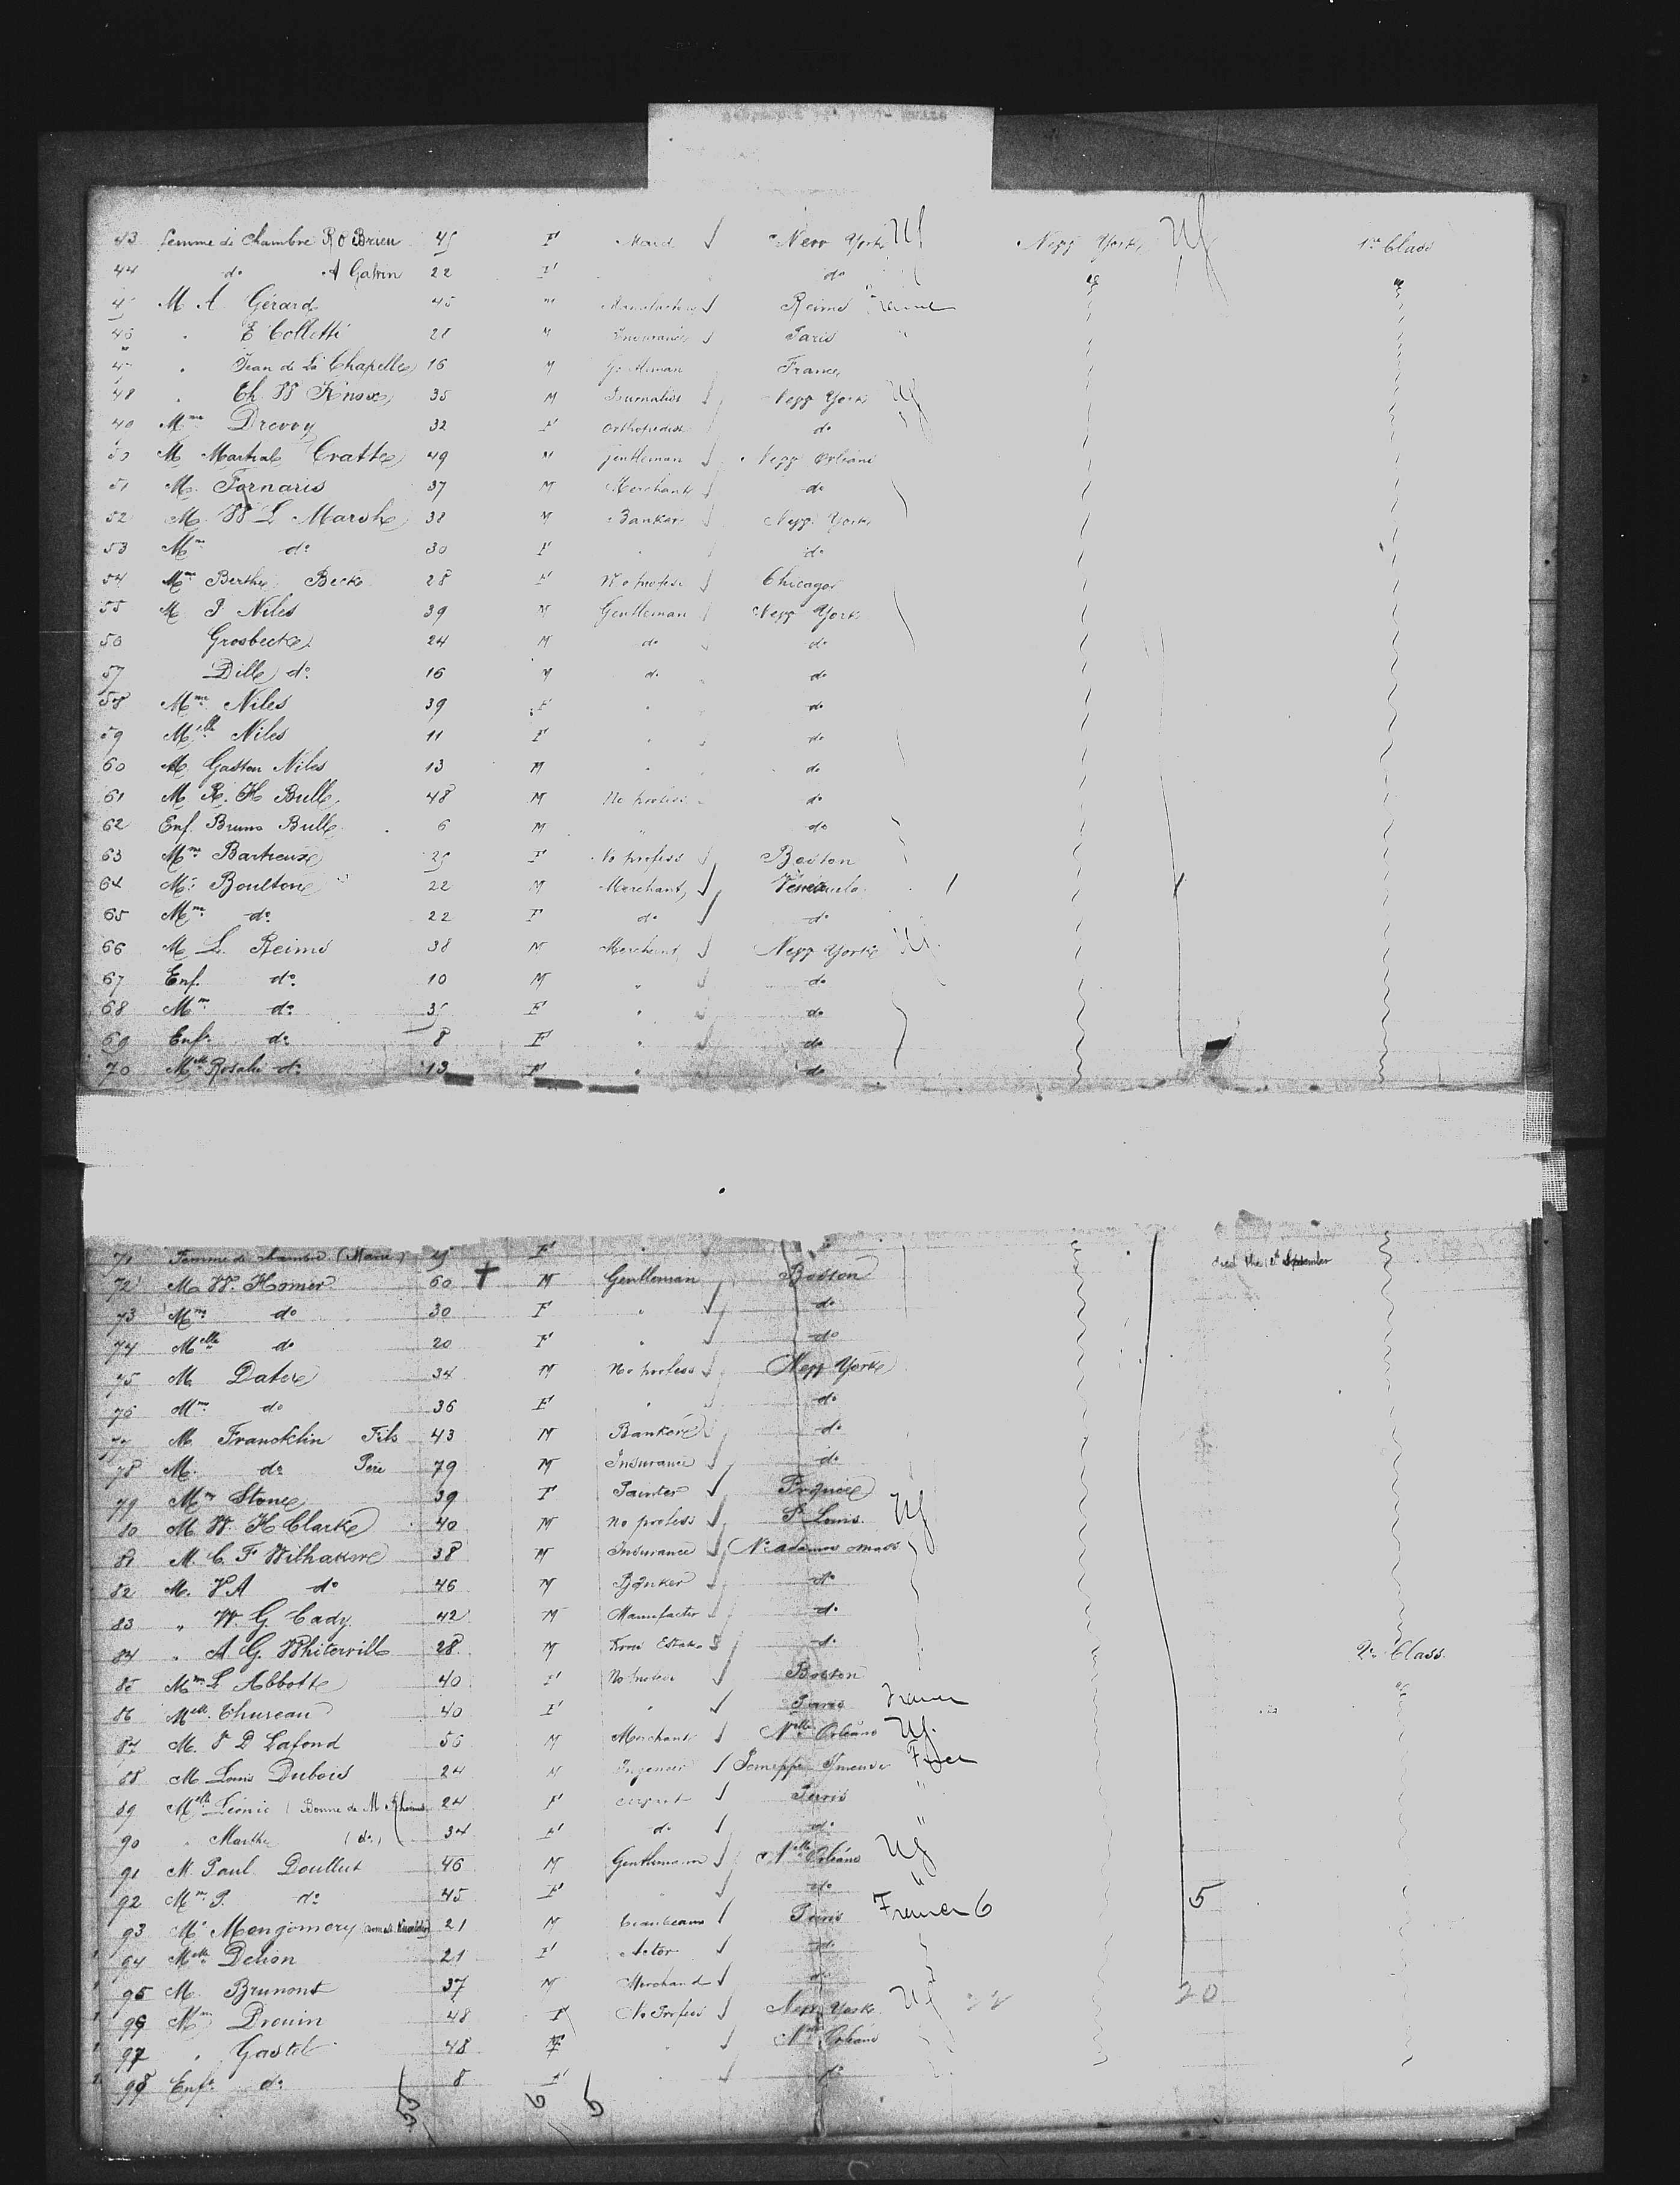 43 Femme de Chambre R O Brien 45 F Maid New York US New York US 1re Class
44 do A Gatrin 22 F do
45 M A Gérard 45 M Reims France
46 " E Colletti 28 M Insurance Paris "
47 " Jean de La Chapelle 16 M Gentleman France
48 " Ch W Knox 35 M Journalist New York US
49 Mme Drevoy 32 F Orthopedist do
50 M Martial Cratte 49 M gentleman New Orleans
51 M. Fornaris 37 M Merchant do
52 M W L Marsh 38 M Banker New York
53 Mme do 30 F do
54 Mme Berthe Beck 28 F No profess Chicago
55 M J Niles 39 M Gentleman New York
56 Grosbeck 24 M do do
57 Dille do 16 M do do
58 Mme Niles 39 F " do
59 Melle Niles 11 F " do
60 M Gaston Niles 13 M " do
61 M R. H Bull 48 M No profess do
62 Enf. Bruno Bull 6 M " do
63 Mme 25 F No profess Boston
64 Mr Boulton 22 M Merchant Venezuela
65 Mme do 22 F do do
66 M L. Reims 38 M Merchant New York US
67 Enf. do 10 M " do
68 Mme do 35 F " do
69 Enf. do 8 F " do
70 Melle Rosalie do 13 F " do
71 Femme de chambre (Marie) F "
72 M W. Homer 60 † M Gentleman Boston died the September
73 Mme do 30 F " do
74 Melle do 20 F " do
75 M. Dater 34 M No profess New York
76 Mme do 36 F " do
77 M Francklin Fils 43 M Banker do
78 M. do Père 79 M Insurance do
79 Mme Stone 39 F Painter
80 M W. H Clarke 40 M no profess St Louis US
81 M. C. F Withaker 38 M Insurance N. adams mass
82 M. V A do 46 M Banker do
83 " W. G Cady 42 M Manufacter do
84 " A G. Whiterville 28 M Estate do 2e Class
85 Mme L Abbott 40 F No profess Boston
86 Melle Thureau 40 F " Paris France
87 M. V D Lafond 56 M Merchant Nelle Orléans US
88 M Louis Dubois 24 M Ingenieur Jemeppe
89 Melle Léonie (Bonne de M Rheims 24 F Paris "
90 " Marthe (do) 34 F do do
91 M Paul Doullut 46 M Gentleman Nelle Orléans US
92 Mme P. do 45 F " do "
93 Mr Mongomery 21 M Paris France 6 5
94 Melle Delion 21 F Actor do
95 M. Brumont 37 M Merchand do 20
96 Mme Drouin 48 F No Profess New York US 22
97 " Gastel 48 F Nelle Orléans
98 Enf. do 8 F " do